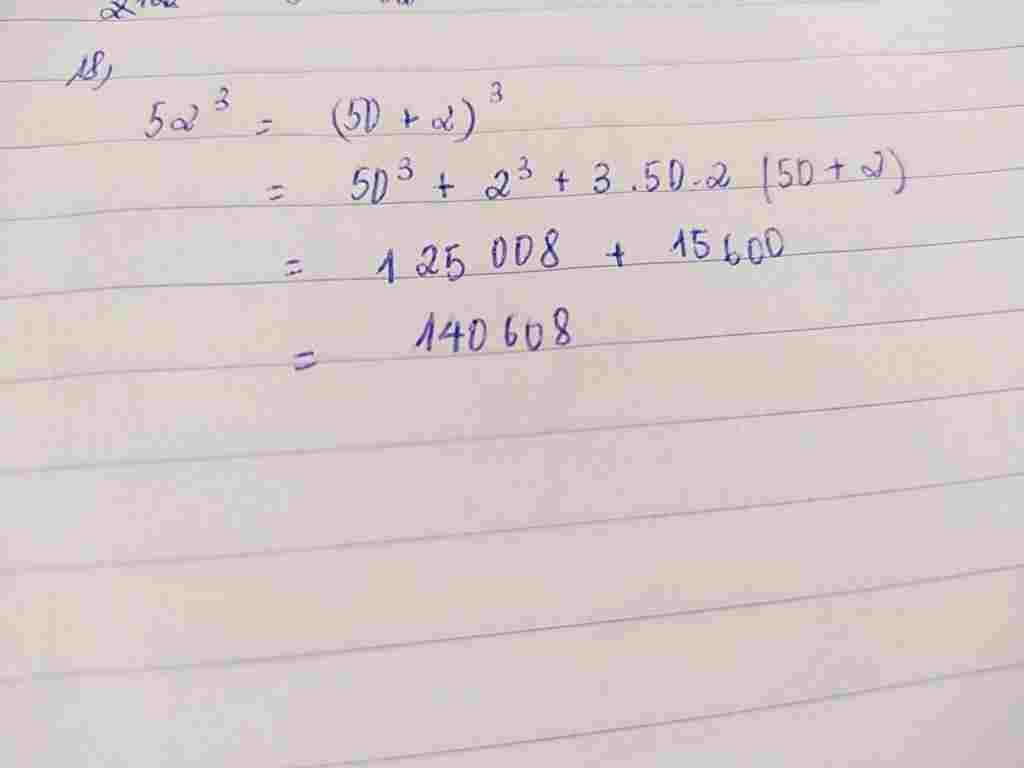 18,
52³ = (50 + 2)³
= 50³ + 2³ + 3.50.2 (50 + 2)
= 125 008 + 15 600
= 140 608